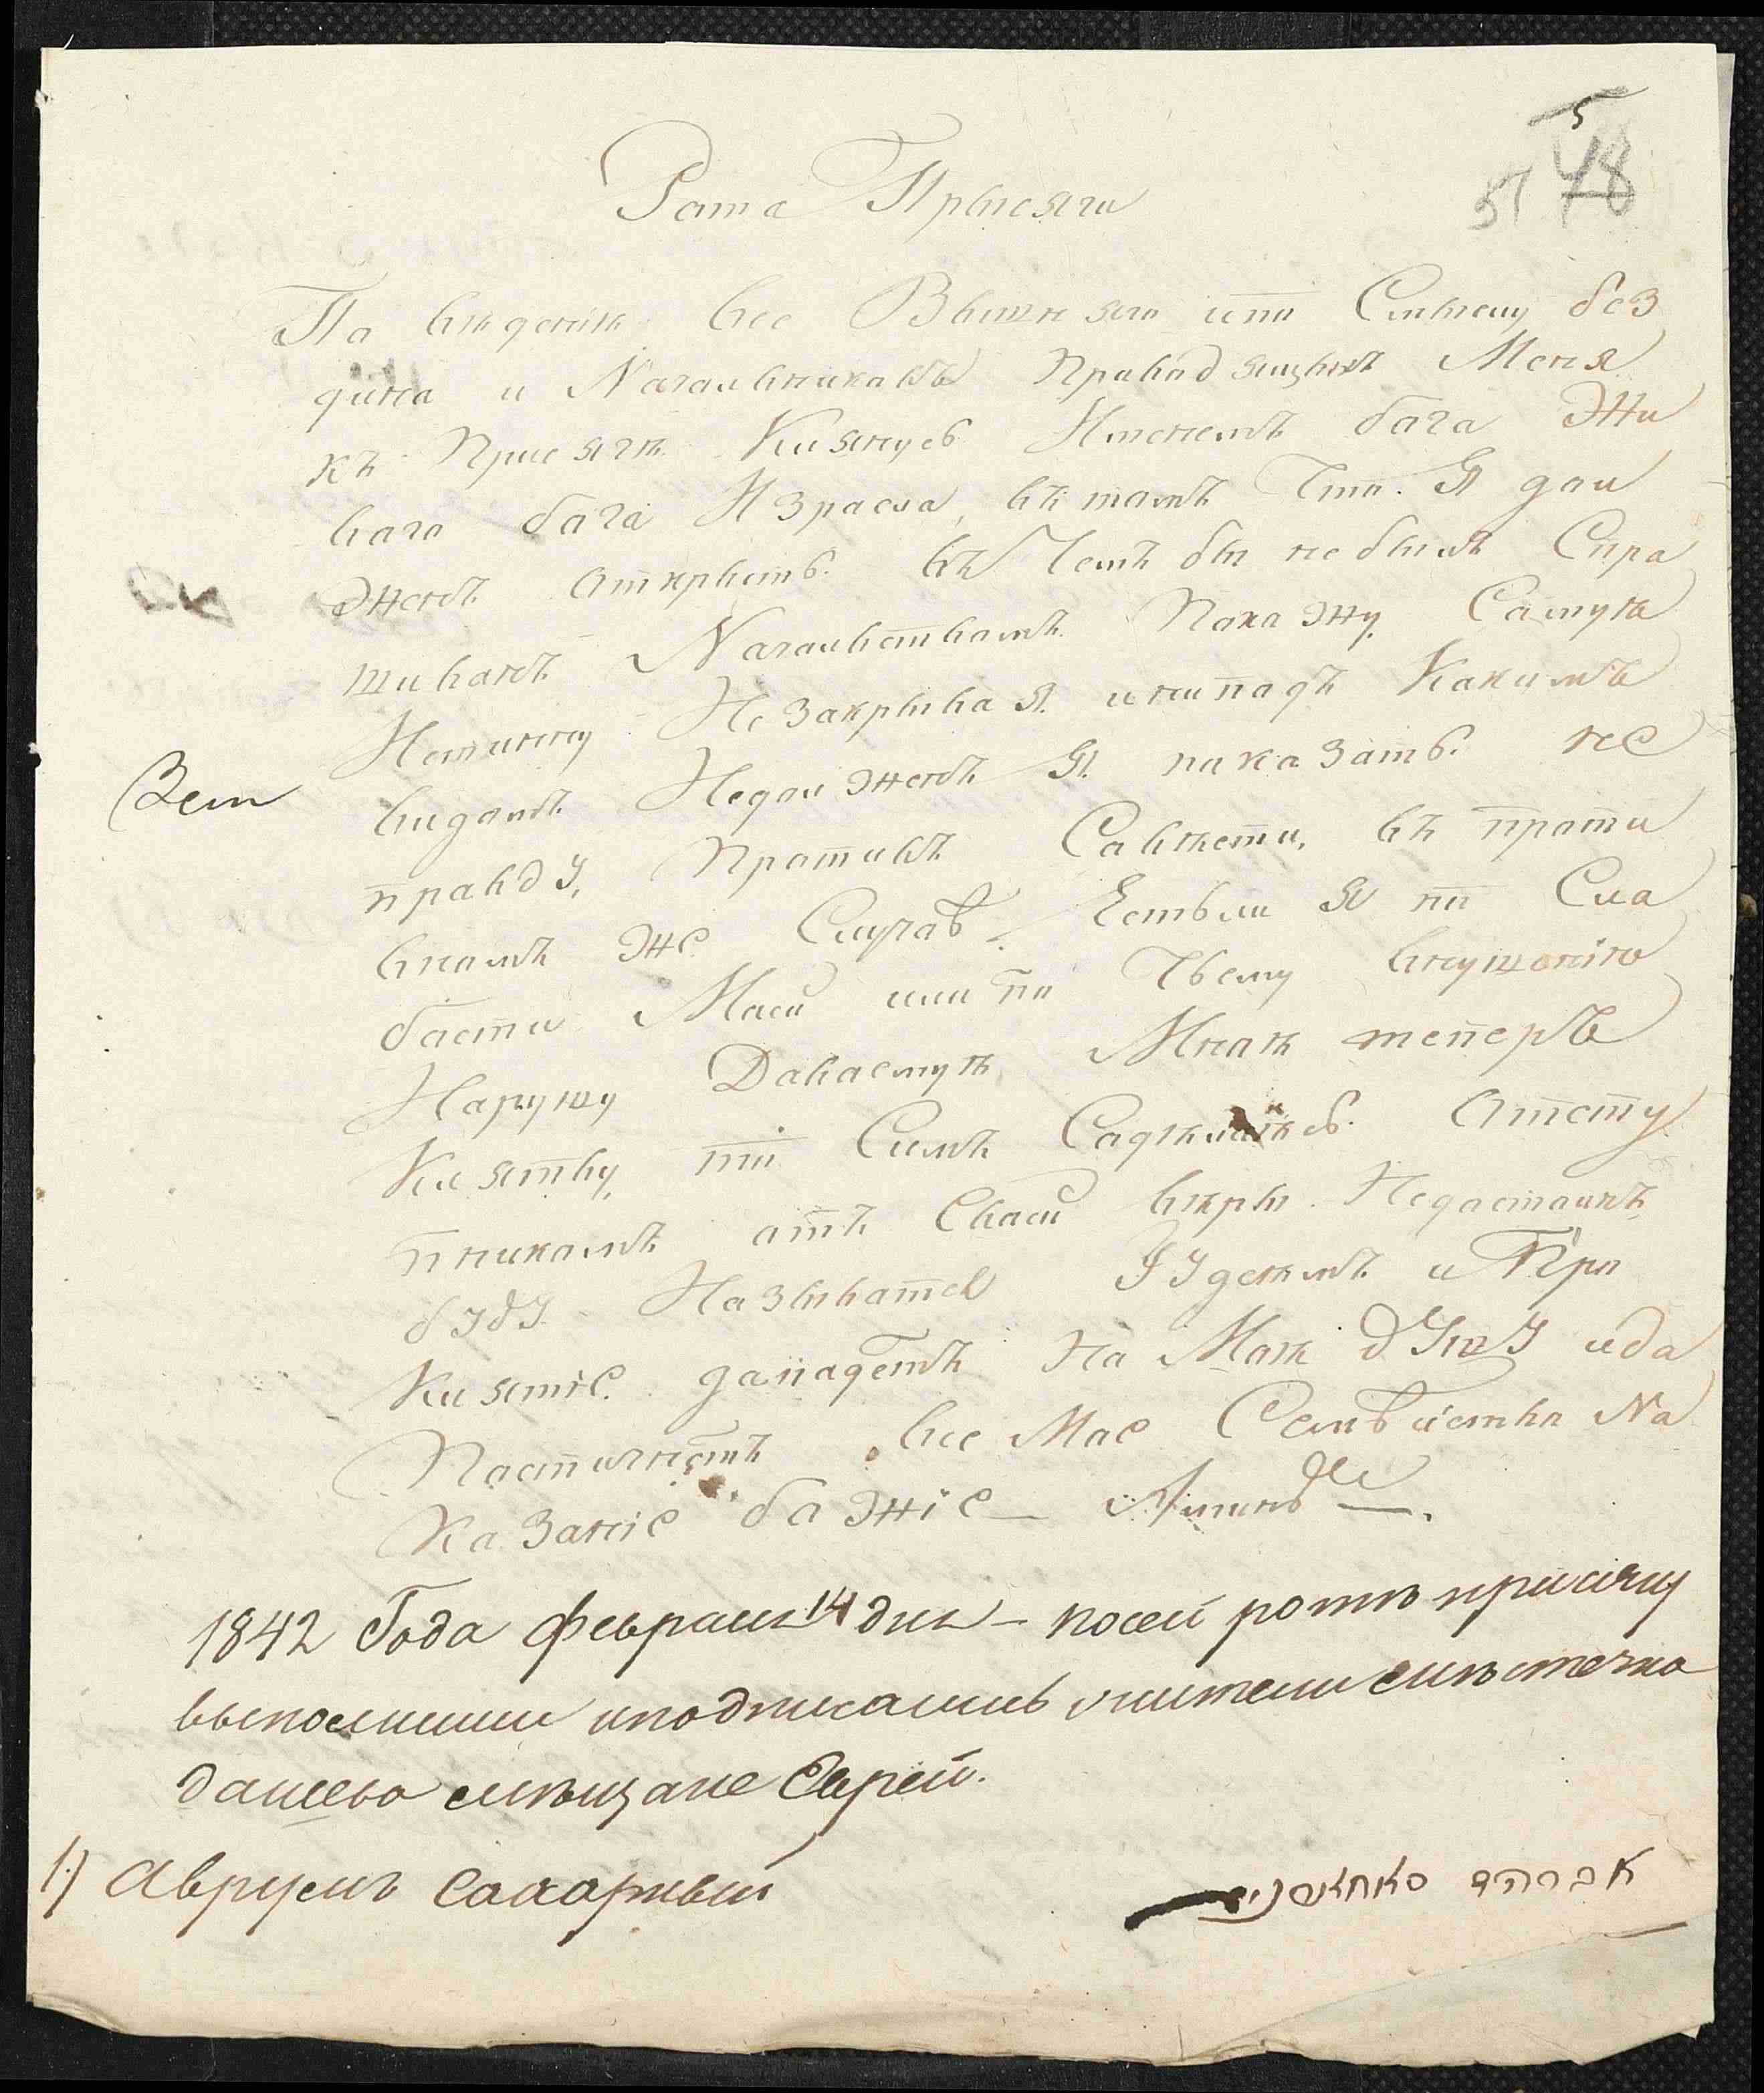 5
51 48
Рата Прысяги
Па вѣденію все Вышняго ипо Смыслу без
дина и Началникавъ Привадящыхъ Меня
къ Присягѣ Клянусь Именемъ бага Жи
ваго бага Израела, въ тамъ Что. Я дол
женъ аткрыть. въ Чемъ бы не былъ Спра
шиванъ Началствамъ Пакажу Самую
Истинну Незакрывая инипадъ Какимъ
видамъ Недолженъ Я паказать не
правду, Пративъ Савѣсти, въ проти
внамъ же Случаѣ. Естьли Я по Сла
басти Маей или по Чьему внушенію
Нарушу Даваемую Мною теперь
Клятву, то Симъ Садѣлаюсь Атсту
пникамъ атъ Сваей вѣры Недастаинъ
буду Называтся Іудеемъ и Про
Клятіе дападетъ На Маю душу ида
Пастигнетъ все Мае Семѣйства На
Казаніе бажіе — Аминь —.
Зем
1842 Года февраля 14 дня – посей ротѣ присягу
выполнили иподписались жители мѣстечка
дашева мѣщане Еврей.
1) Аврумъ Сахарный
אברהם סאחארני